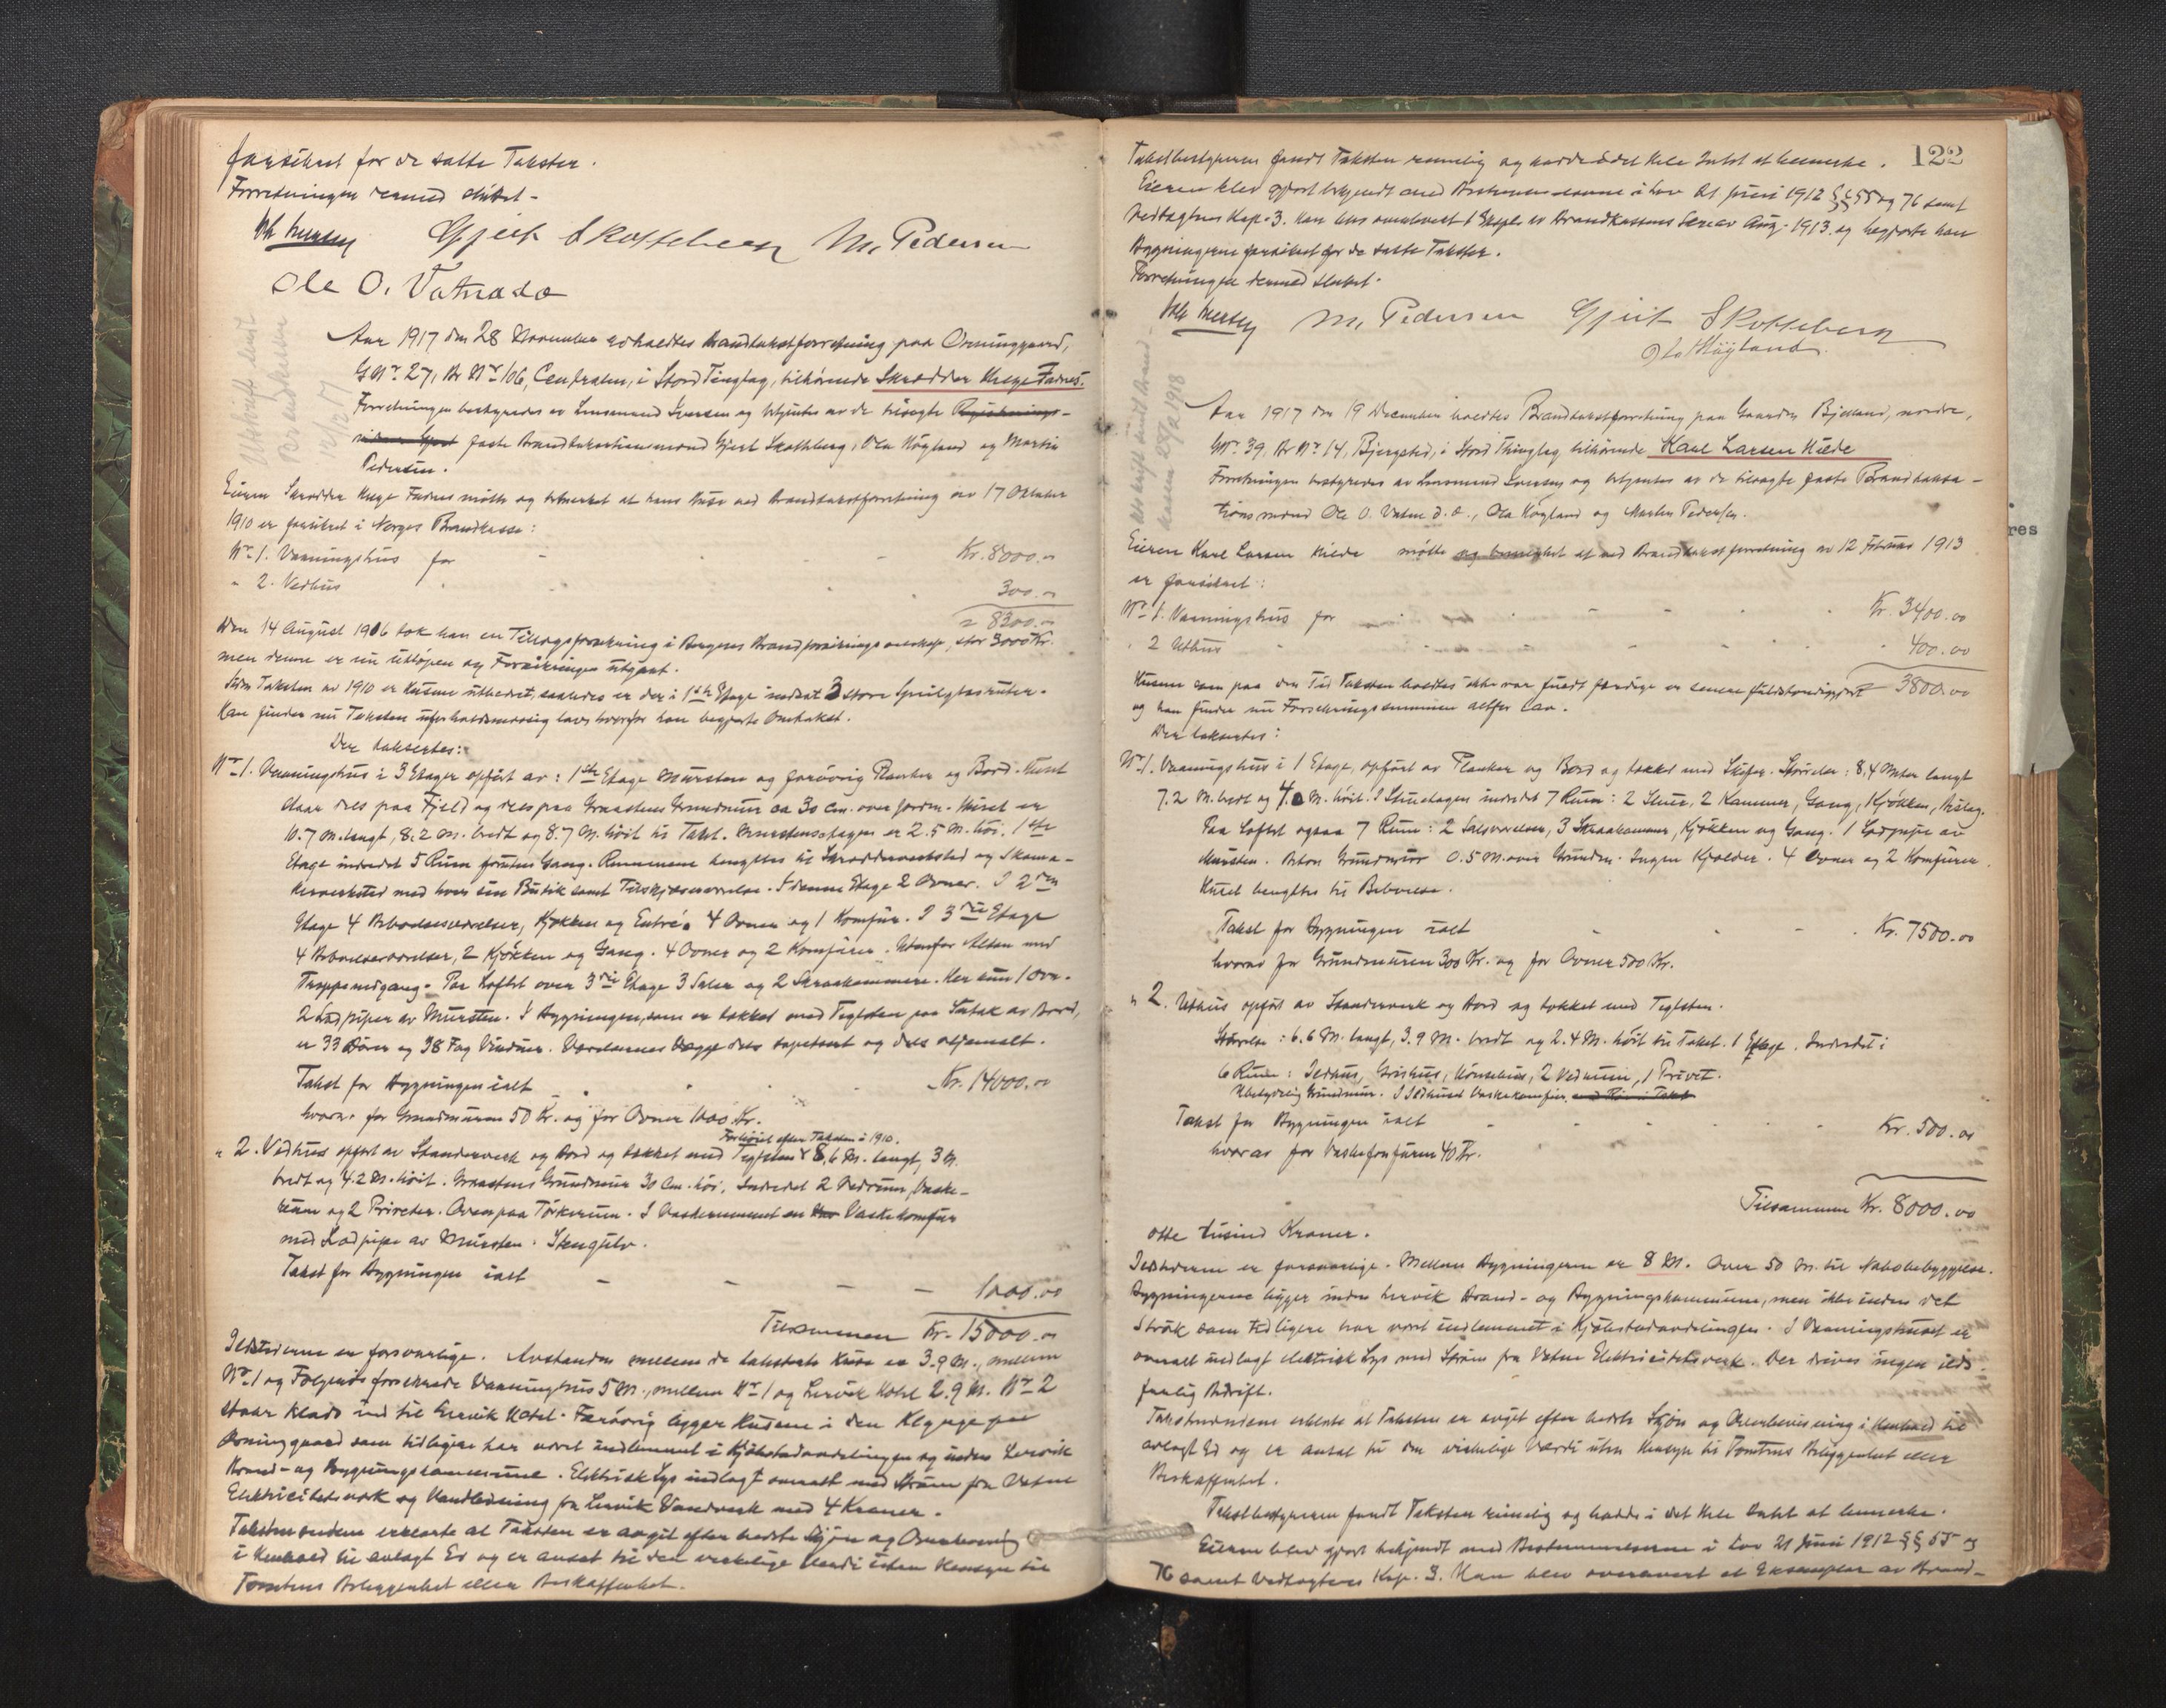 forsikret for de satte Takster.
Forretningen dermed sluttet -
Gjert Skotteberg M. Pedersen
Ole O. Vatne d. e.
Utskrift sendt
Brandkassen
Aar 1917 den 28 November avholdtes Brandtakstforretning paa Orninggaard,
G Nr. 27, Br Nr 106, Centralen, i Stord Tinglag, tilhørende Skrædder Helge Fadnes.
Forretningen bestyredes av Lensmand Iversen og betjentes av de tilsagte
faste Brandtakstmænd Gjert Skotteberg, Ola Høyland og Martin
Pedersen.
Eieren Skrædder Helge Fadnes møtte og bemerket at hans Huse ved Brandtakstforretning av 17 Oktober
1910 er forsikret i Norges Brandkasse:
Nr 1. Vaaningshus for - - Kr. 8000.00
" 2. Vedhus 300.00
= 8300.00
Den 14 August 1916 tok han en Tillægsforsikring i Bergens Brandforsikringsselskap, stor 3000 Kr.
men denne er nu utløpen og Forsikringen utgaat.
Siden Taksten av 1910 er Husene utbedret, saaledes er der i 1ste Etage indsat 3 store Speilglasruter.
Han finder nu Taksten uforholdsmæssig lav, hvorfor han begjærte Omtakst.
Der takseres:
Nr 1. Vaaningshus i 3 Etager opført av: 1ste Etage Mursten og forøvrig Planker og Bord. Huset
staar dels paa Fjeld og dels paa Graastens Grundmur ca 30 cm. over Jorden. Huset er
10.7 M. langt, 8.2 M. bredt og 8.7 M. høit til Taket. Murstensetagen er 2.5 M. høi. I 1ste
Etage indredet 5 Rum foruten Gang. Rummene benyttes til Skrædderverksted og Skoma-
kerverksted med hver sin Butik samt Tilskjæreværelse. I denne Etage 2 Ovner. I 2den
Etage 4 Beboelsesværelser, Kjøkken og Entré. 4 Ovner og 1 Komfur. I 3die Etage
4 Beboelsesværelser, 2 Kjøkken og Gang. 4 Ovner og 2 Komfurer. Utenfor Altan med
Trappenedgang. Paa Loftet over 3die Etage 3 Saler og 2 Skraakammere. Her kun 1 Ovn.
2 Lodpiper av Mursten. I Bygningen, som er tækket med Teglsten paa Sutak av Bord,
er 33 Dører og 38 Fag Vinduer. Værelsernes Vægge dels tapetsert og dels oljemalt.
Takst for Bygningen ialt - Kr. 14000.00
hvorav for Grundmuren 50 Kr. og for Ovner 1000 Kr.
Forhøiet efter Taksten i 1910.
" 2. Vedhus opført av Standerverk og Bord og tækket med Teglsten 8,6 M. langt, 3 M.
bredt og 4.2 M. høit. Graastens Grundmur 30 Cm. høi. Indredet 2 Vedrum, Vaske-
rum og 2 Priveter. Ovenpaa Tørkerum. I Vaskerummet en Vaskekomfur
med Lodpipe av Mursten. Stengulv.
Takst for Bygningen ialt - - - - 1000.00
Tilsammen Kr. 15000.00
Ildstederne er forsvarlige. Avstanden mellem de takserte Huse er 3.9 M., mellem
Nr 1 og forsikrede Vaaningshus 5 M., mellem Nr 1 og Lervik Hotel 2.9 M. Nr 2
staar klods ind til Lervik Hotel. Forøvrig ligger Husene i den Klynge paa
Orninggaard som tidligere har været indlemmet i Kjøbstadavdelingen og inden Lervik
Brand- og Bygningskommune. Elektrisk Lys indlagt overalt med Strøm fra Vatne
Elektricitetsverk og Vandledning fra Lervik Vandverk med 4 Kraner.
Takstmændene erklærte at Taksten er avgit efter bedste Skjøn og Overbevisning
i Henhold til avlagt Ed og er ansat til den virkelige Værdi uten Hensyn til
Tomtens Beliggenhet eller Beskaffenhet.
122
Takstbestyreren fandt Taksten rimelig og hadde i det Hele Intet at bemerke.
Eieren blev gjort bekjendt med Bestemmelserne i Lov 21 Juni 1912 §§ 55 og 76 samt
Vedtægtens Kap. 3. Han blev overlevert 1 Expl. av Brandkassens Skriv av Aug. 1913 og begjærte han
Bygningerne forsikret for de satte Takster.
Forretningen dermed sluttet.
M. Pedersen Gjert Skotteberg
Ola Høyland
Utskrift sendt Brand
kassen 28/2 1918
Aar 1917 den 19 December holdtes Brandtakstforretning paa Gaarden Bjelland, nordre,
G Nr. 39, Br Nr 14, Bjergsted, i Stord Thinglag tilhørende Karl Larsen Hilde
Forretningen bestyredes av Lensmand Iversen og betjentes av de tilsagte faste Brandtaksa-
tionsmænd Ole O. Vatne d. e., Ola Høyland og Martin Pedersen.
Eieren Karl Larsen Hilde møtte og bemerket at ved Brandtakstforretning av 12 Februar 1913
er forsikret:
Nr 1. Vaaningshus for - - - Kr 3400.00
" 2 Uthus - - - 400.00
3800.00
Husene som paa den Tid Taksten holdtes ikke var fuldt færdige er senere fuldstændiggjort
og han finder nu Forsikringssummen altfor lav.
Der takseres:
Nr 1. Vaaningshus i 1 Etage, opført av Planker og Bord og tækket med Skifer. Størrelse: 8,4 Meter langt
7.2 M. bredt og 4.0 M. høit. I Stueetagen indredet 7 Rum: 2 Stuer, 2 Kammer, Gang, 1 Kjøkken,
Paa Loftet ogsaa 7 Rum: 2 Salsværelser, 3 Skraakammer, Kjøkken og Gang. 1 Lodpipe av
Mursten. Beton Grundmur 0.5 M. over Grunden. Ingen Kjælder. 4 Ovner og 2 Komfurer.
Huset benyttes til Beboelse.
Takst for Bygningen ialt - - - Kr. 7500.00
hvorav for Grundmuren 300 Kr. og for Ovner 500 Kr.
" 2. Uthus opført av Standerverk og Bord og tækket med Teglsten.
Størrelse: 6.6 M. langt, 3.9 M. bredt og 2.4 M. høit til Taket. 1 Etage. Indredet i
6 Rum: Ildhus, Grishus, Hønsehus, 2 Vedrum, 1 Privet.
Ubetydelig Grundmur. I Ildhuset Vaskekomfur.
Takst for Bygningen ialt - - - Kr. 500.00
hvorav for Vaskekomfuren 40 Kr.
Tilsammen Kr. 8000.00
otte tusind Kroner.
Ildstederne er forsvarlige. Mellem Bygningerne er 8 M. Over 50 M. til Nabobebyggelse.
Bygningerne ligger inden Lervik Brand- og Bygningskommune, men ikke inden det
Strøk som tidligere har været indlemmet i Kjøbstadavdelingen. I Vaaningshuset er
overalt indlagt elektrisk Lys med Strøm fra Vatne Elektricitetsverk. Der drives ingen ilds-
farlig Bedrift.
Takstmændene erklærte at Taksten er avgit efter bedste Skjøn og Overbevisning i Henhold til
avlagt Ed og er ansat til den virkelige Værdi uten Hensyn til Tomtens Beliggenhet eller
Beskaffenhet.
Takstbestyreren fandt Taksten rimelig og hadde i det Hele Intet at bemerke.
Eieren blev gjort bekjendt med Bestemmelserne i Lov 21 Juni 1912 §§ 55 og
76 samt Vedtægtens Kap. 3. Han blev overlevert et Eksemplar av Brand-
res